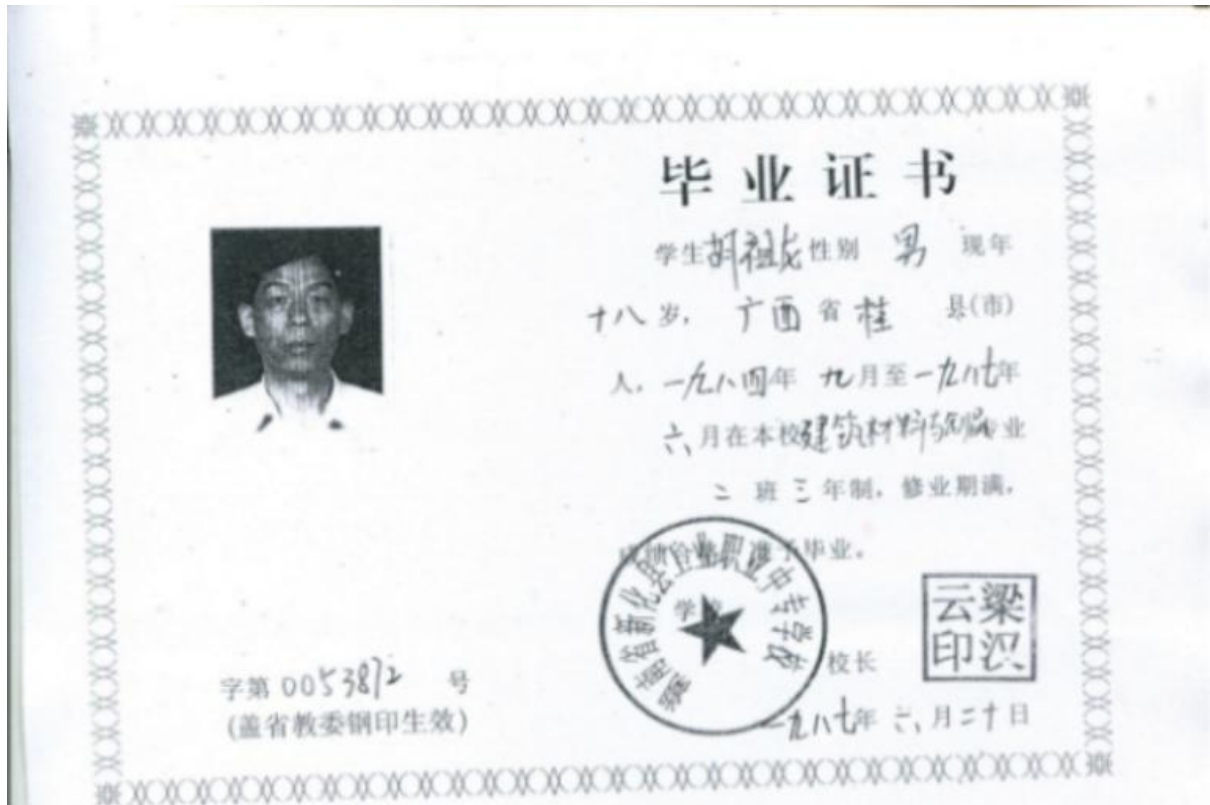 毕业证书
学生胡祖龙性别 男 现年
十八岁，广西省桂 县(市)
人，一九八四年 九月至一九八七年
六月在本校建筑材料与 专业
二 班三年制，修业期满，
准予毕业。
学校
湖南省新化县 业职业中专学校
校长
云梁
印
一九八七年 六月二十日
字第 0053872 号
(盖省教委钢印生效)